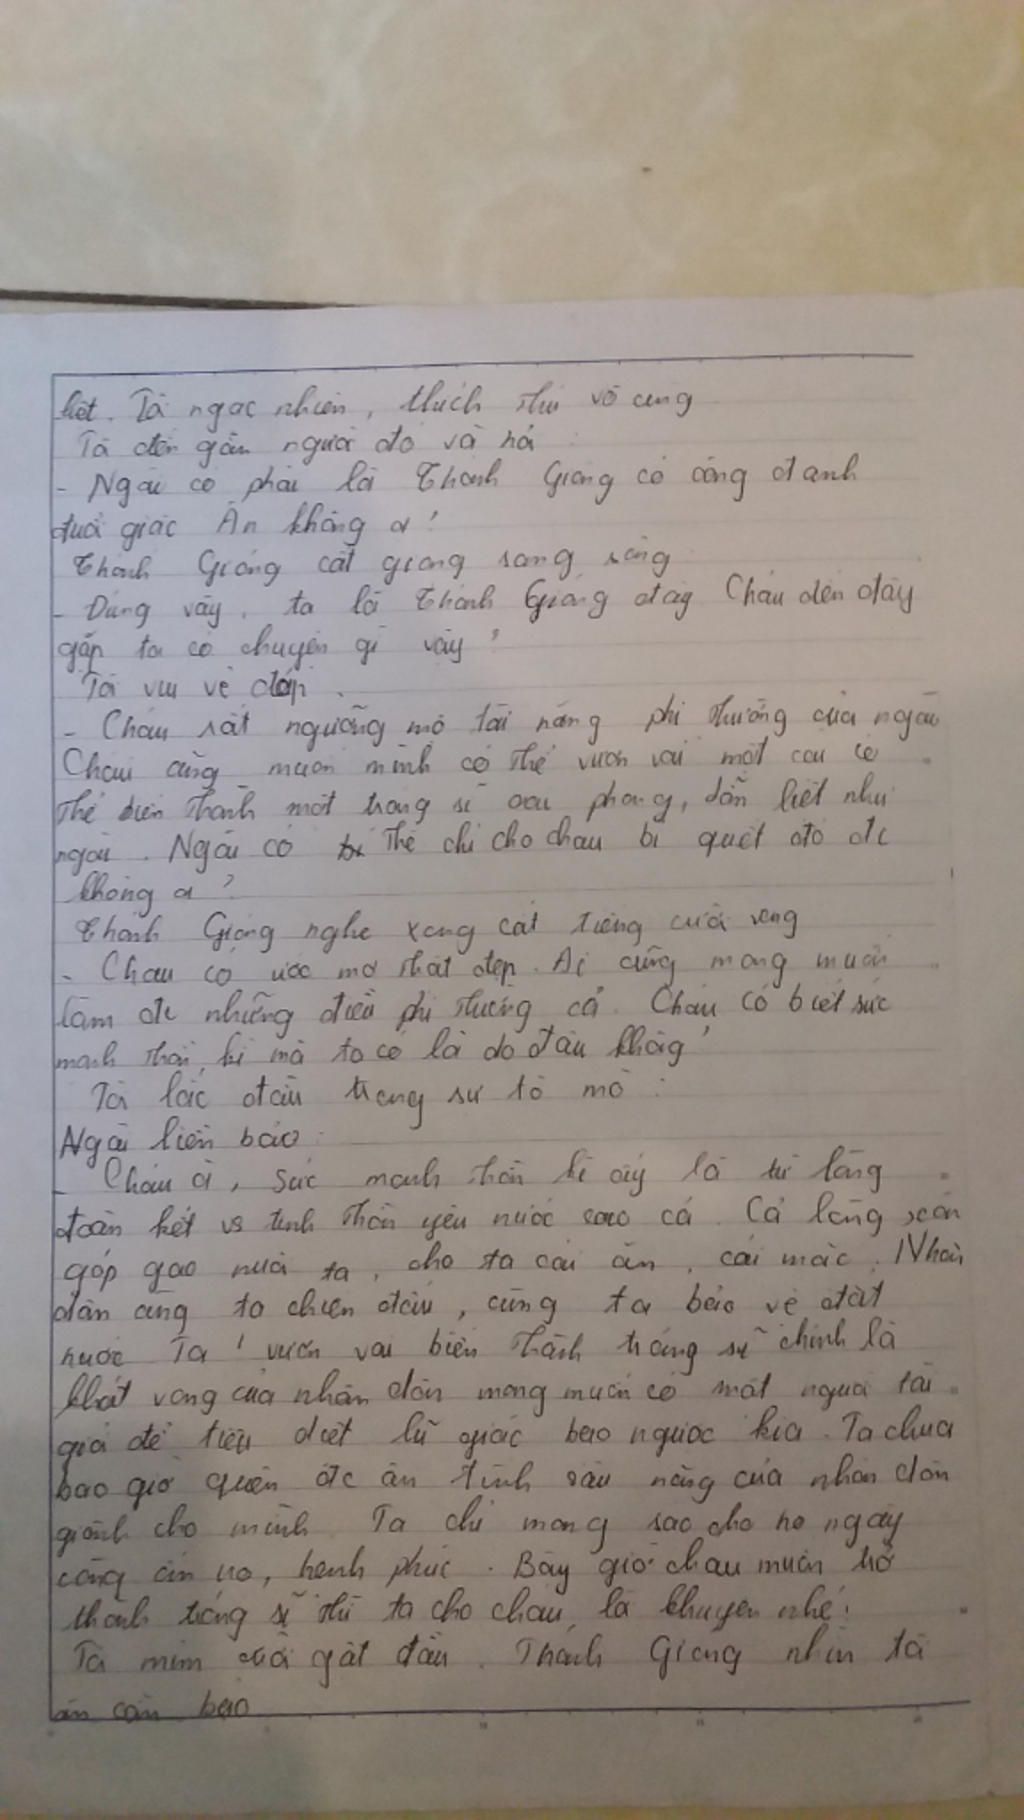 liệt. Tôi ngạc nhiên, thích thú vô cùng
Tôi đến gần người đó và hỏi :
- Ngài có phải là Thánh Gióng có công đánh
đuổi giặc Ân không ạ?
Thánh Gióng cất giọng sang sảng
- Đúng vậy, ta là Thánh Gióng đây. Cháu đến đây
gặp ta có chuyện gì vậy?
Tôi vui vẻ đáp .
- Cháu rất ngưỡng mộ tài năng phi thường của ngài
Cháu cũng muốn mình có thể vươn vai một cái có
thể biến thành một tráng sĩ oai phong, dẫn liệt như
ngài. Ngài có thể chỉ cho cháu bí quyết đó đc
không ạ?
Thánh Gióng nghe xong cất tiếng cười vang
- Cháu có ước mơ thật đẹp. Ai cũng mong muốn
làm đc những điều phi thường cả. Cháu có biết sức
mạnh thần kì mà ta có là do đâu không?
Tôi lắc đầu trong sự tò mò :
Ngài liền bảo :
- Cháu à, sức mạnh thần kì ấy là từ lòng
đoàn kết vs tinh thần yêu nước cao cả. Cả làng xóm
góp gạo nuôi ta, cho ta cái ăn, cái mặc. Nhân
dân cùng ta chiến đấu, cùng ta bảo vệ đất
nước. Ta vươn vai biến thành tráng sĩ chính là
khát vọng của nhân dân mong muốn có một người tài
giỏi để tiêu diệt lũ giặc bạo ngược kia. Ta chưa
bao giờ quên đc ân tình sâu nặng của nhân dân
giành cho mình. Ta chỉ mong sao cho họ ngày
càng ấm no, hạnh phúc. Bây giờ cháu muốn trở
thành tráng sĩ thì ta cho cháu lời khuyên nhé!
Tôi mỉm cười gật đầu. Thánh Gióng nhìn tôi
ân cần bảo